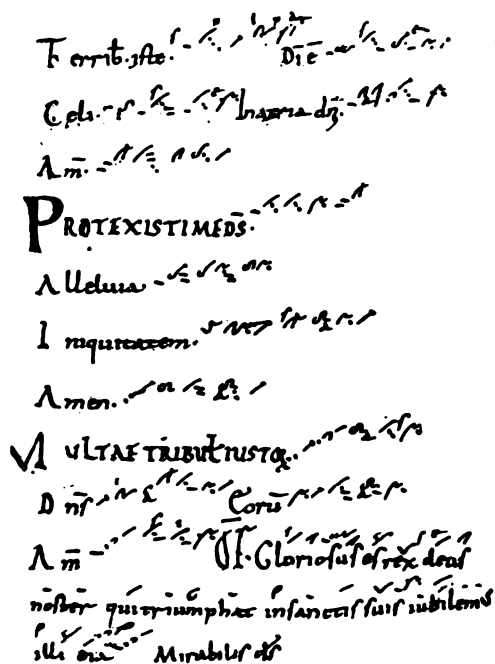 Terrib. iste. Die
Celi. In atria dñi.
Am̄.
PROTEXISTI ME DS̄.
Alleluia
Iniquitatem.
Amen.
MULTAE TRIBUL IUSTOR.
Dñs Eorū
Am̄ Of. Gloriosus es rex deus
noster qui triumphat in sanctis suis iubilem̄
illi Mirabilis ds̄